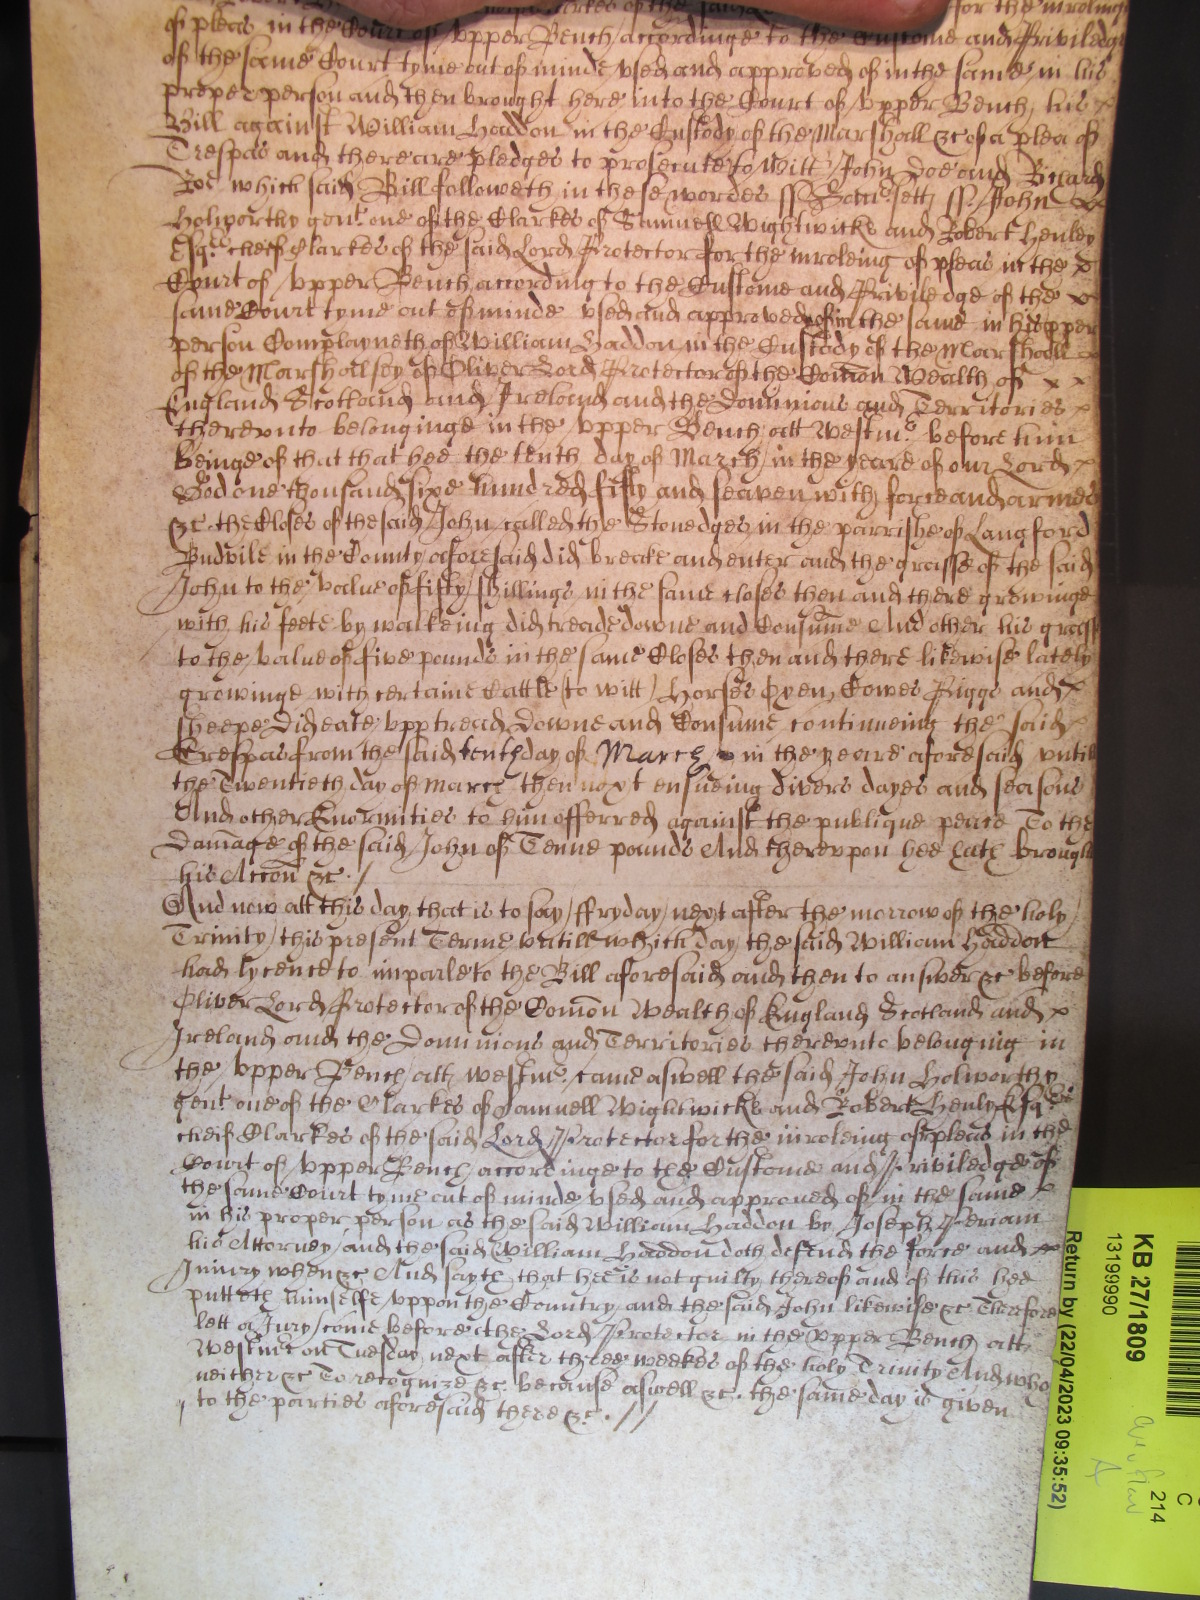 Clarkes of the said for the inroleing
of pleas in the Court of vpper Bench accordinge to the Custome and Priviledge
of the same Court tyme out of minde vsed and approved of in the same in his
proper person and then brought here into the Court of vpper Bench his x
Bill against William Haddon in the Custody of the Marshall &c of a plea of
Trespas and there are pledges to prosecute to Witt John Doe and Ricard
Roe which said Bill followeth in these wordes ss Som̃sett ss John x
Holworthy gent. one of the Clarkes of Samuell Wightwicke and Robert Henley
Esqrs. cheif Clarkes of the said Lord Protector for the inroleing of pleas in the x
Court of vpper Bench according to the Custome and Priviledge of the x
same Court tyme out of minde vsed and approved of in the same in his pper
person Complayneth of William Haddon in the Custody of the Marshall x
of the Marshallsey of Oliver Lord Protector of the Com̃on Wealth of x x
England Scotland and Ireland and the Dominions and Territories x
therevnto belonginge in the vpper Bench att Westmr. before him
beinge of that that hee the tenth day of March in the yeare of our Lord x
God one thousand sixe hundred fifty and seaven with force and armes
&c. the Closes of the said John called the Stonedges in the parrishe of Langford
Budvile in the County aforesaid did breake and enter and the grasse of the said
John to the value of fifty shillings in the same closes then and there growinge
with his feete by walkeing did treade downe and Consum̃e And other his grasse
to the value of five pounds in the same Closes then and there likewise lately
growinge with certaine Cattle to witt Horses Oxen Cowes Piggs and x
sheepe did eate vpp tread downe and Consume continueing the said x
Trespas from the said tenth day of March in the yeare aforesaid vntill
the Twentieth day of March then next ensueing divers dayes and seasons
And other Enormities to him offerred against the publique peace To the
Damage of the said John of Tenne pounds And therevpon hee hath brought
his Acc̃on &c. /
And now att this day that is to say ffryday next after the morrow of the holy
Trinity this present Terme vntill which day the said William Haddon
had lycence to imparle to the Bill aforesaid and then to answer &c before
Oliver Lord Protector of the Com̃on Wealth of England Scotland and x
Ireland and the Dominions and Territories therevnto belonging in
the vpper Bench att westmr. came aswell the said John Holworthy
gent. one of the Clarkes of Samuell Wightwicke and Robert Henly Esqrs.
cheif Clarkes of the said Lord Protector for the inroleing of pleas in the
Court of vpper Bench accordinge to the Custome and Priviledge of
the same Court tyme out of minde vsed and approued of in the same x
in his proper person as the said William Haddon by Joseph Periam
his Attorney and the said William Haddon doth defend the force and x
Iniury when &c And sayth that hee is not guilty thereof and of this hee
putteth himselfe vppon the Country and the said John likewise &c Therefore
lett a Jury come before the Lord Protector in the vpper Bench att
Westmr. on Tuesday next after three weekes of the holy Trinity And who
neither &c To recognize &c because aswell &c. the same day is given
to the parties aforesaid there &c. //
KB 27/1809
13199990
Return by (22/04/2023 09:35:52)
C
214
A